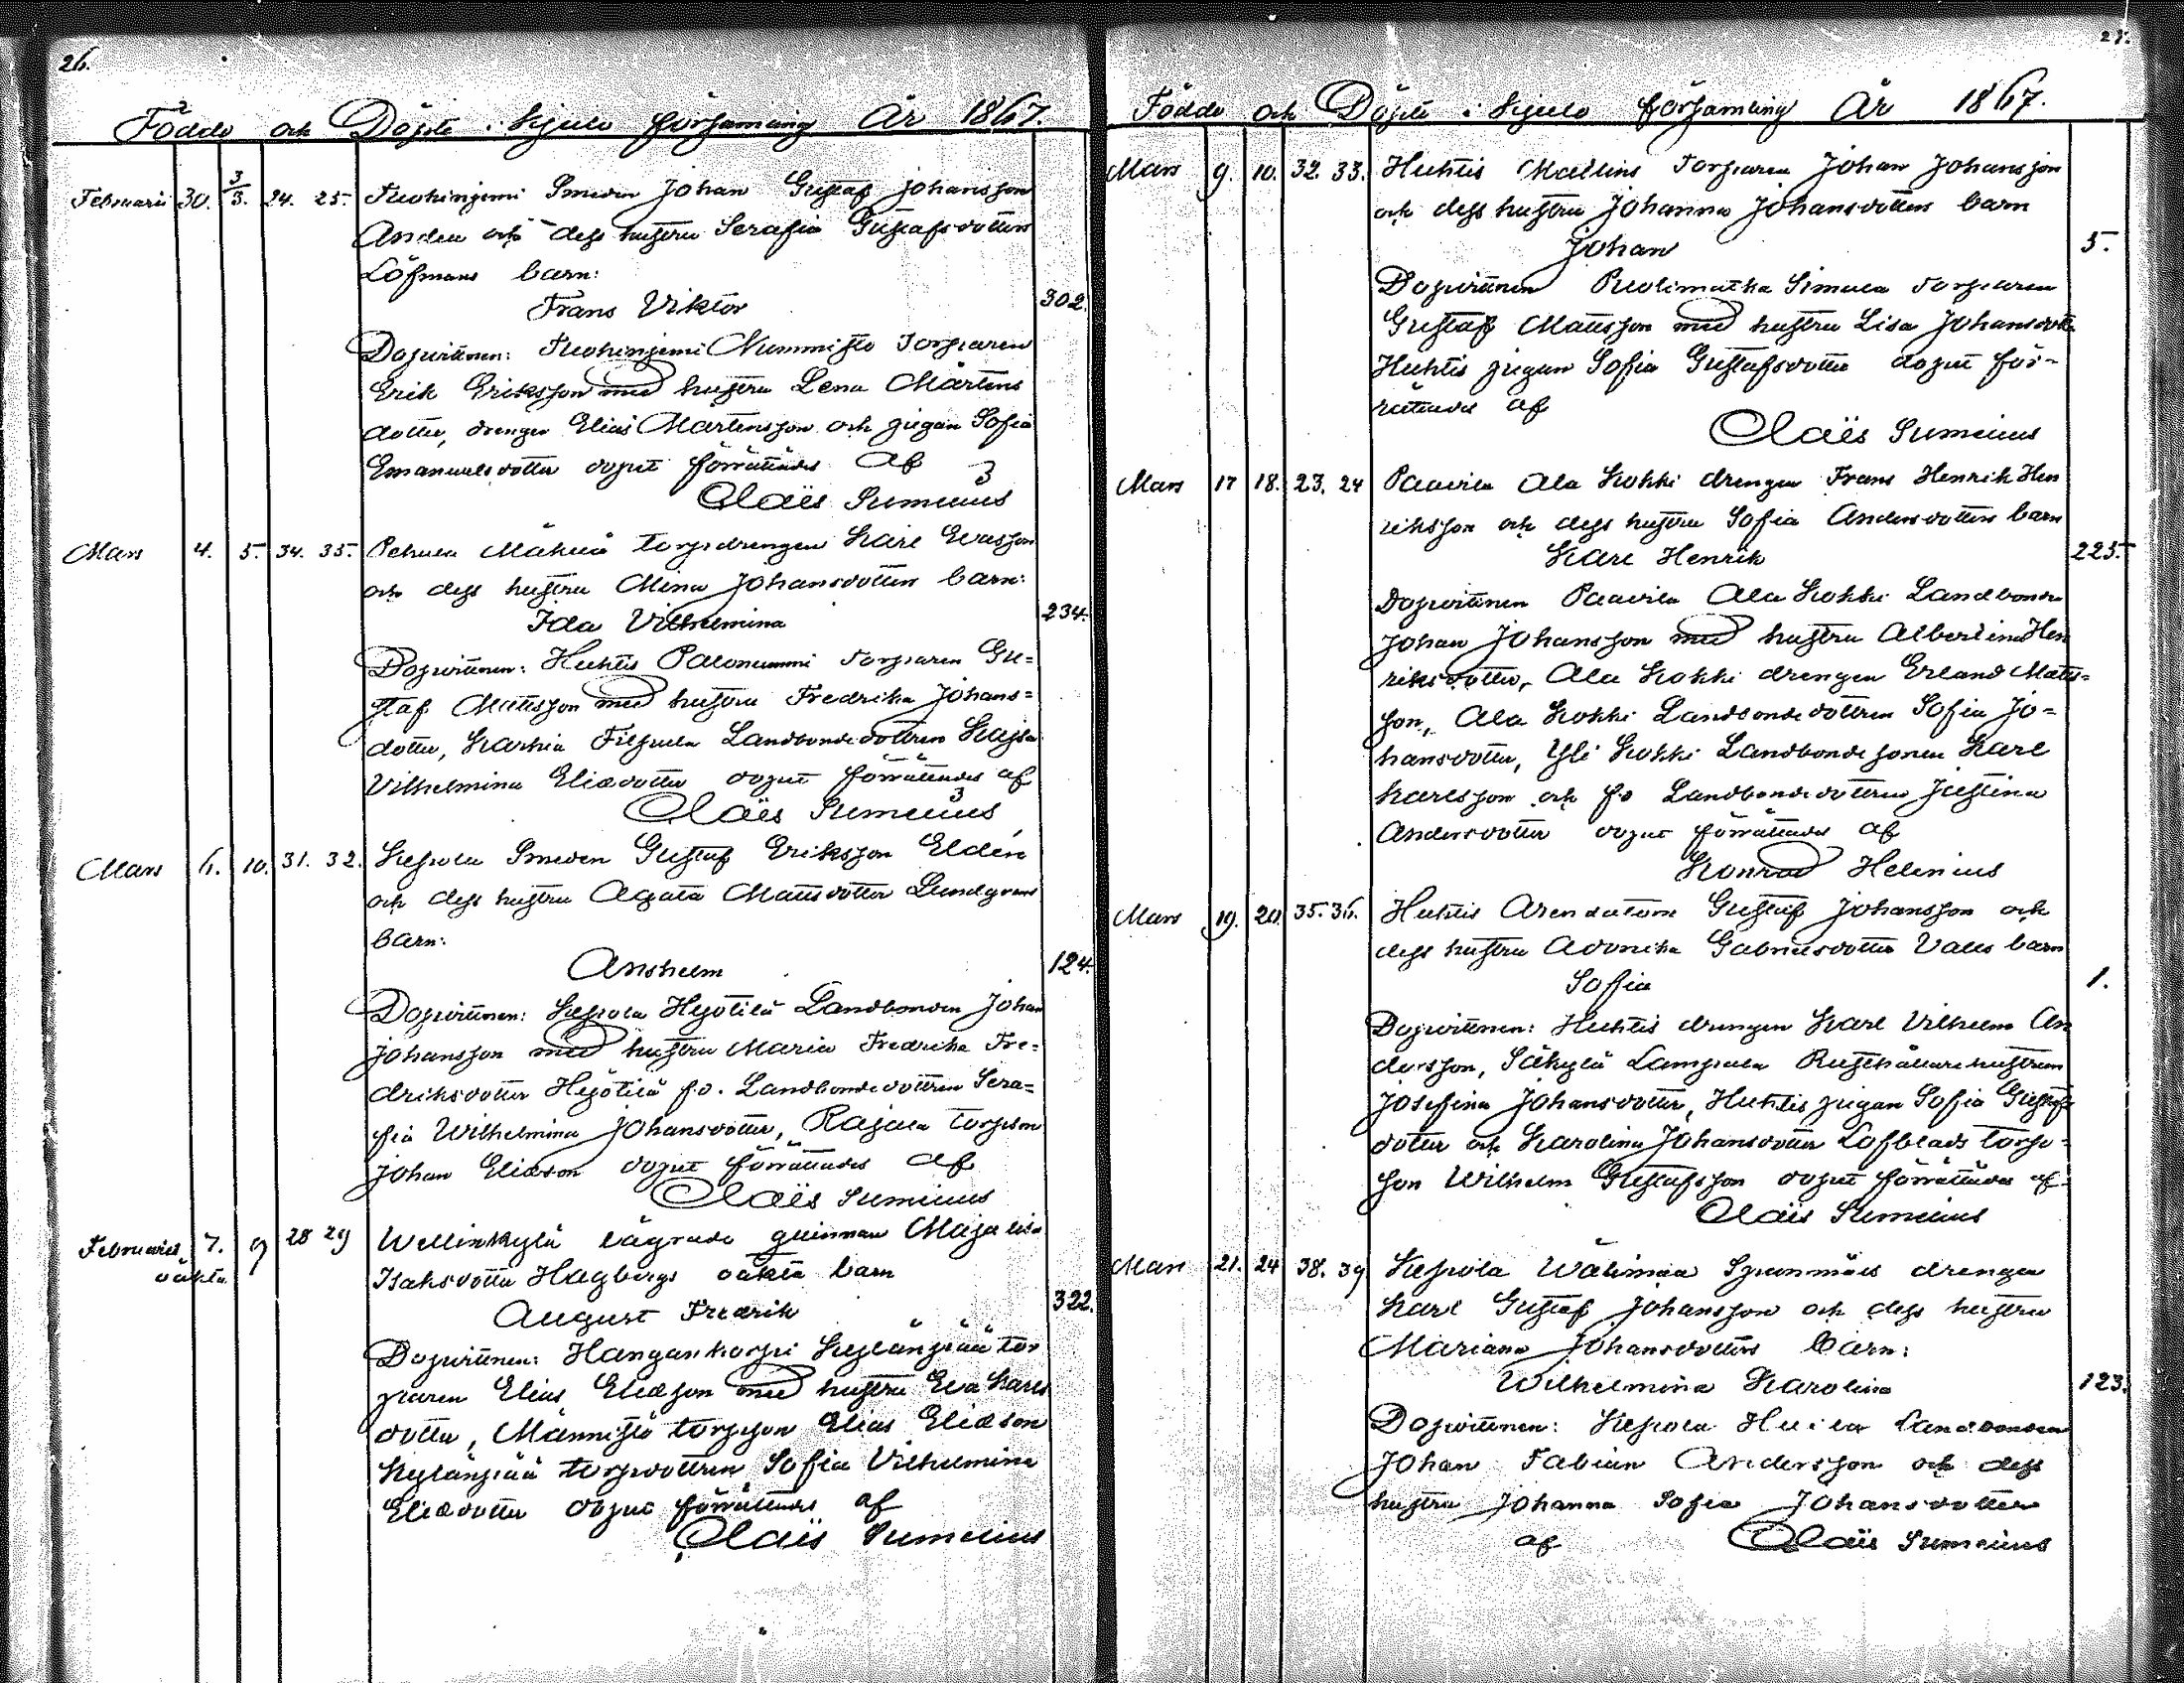 26.
Födde och Döpte i Kjulo församling År 1867.
Februarii 30. 3/3. 24. 25. Smeden Johan Gustaf Johansson
Anden och dess hustru Serafia Gustafsdotters
Löfmans barn:
Frans Viktor 302.
Dopvittnen: Nummisto Torparen
Erik Eriksson med hustru Lena Mårtens
dotter, drengen Elias Mårtensson och pigan Sofia
Emanuelsdotter dopet förrättades af
Claës Sumelius
Mars 4. 5. 34. 35. torpdrengen Karl Evasson
och dess hustru Mina Johansdotters barn:
Ida Vilhelmina 234.
Dopvittnen: Huhtis Palonummi Torparen Gu=
staf Mattsson med hustru Fredrika Johans=
dotter, Karhia Landbonde dottren Kajsa
Vilhelmina Eliædotter dopet förrättades af
Claës Sumelius
Mars 6. 10. 31. 32. Kepola Smeden Gustaf Eriksson Eldén
och dess hustru Agata Mattsdotter Lundgrens
barn:
Anshelm 124.
Dopvittnen: Kepola Hejötilä Landbonden Johan
Johansson med hustru Maria Fredrika Fre=
driksdotter Hejötilä f.d. Landbondedottren Sera=
fia Wilhelmina Johansdotter, Rajala torpson
Johan Eliæson dopet förrättades af
Claës Sumelius
Februarii 7. 9 28 29 Wellinkylä lägrade qvinnan Maja Lisa
oäkta Isaksdotter Hagbergs oäkta barn
August Fredrik 322.
Dopvittnen: Hangankorpi Kylänpää tor
paren Elias Eliæson med hustru Eva Karls
dotter, Männistö torpson Elias Eliæson
Kylänpää torpdottren Sofia Vilhelmina
Eliædotter dopet förrättades af
Claës Sumelius
27.
Födde och Döpte i Kjulo församling År 1867.
Mars 9. 10. 32. 33. Huhtis Mallius Torparen Johan Johansson
och dess hustru Johanna Johansdotters barn
Johan 5.
Dopvittnen Simula Torparen
Gustaf Mattsson med hustru Lisa Johansdotter
Huhtis pigan Sofia Gustafsdotter dopet för-
rättades af
Claës Sumelius
Mars 17 18. 23. 24 Paavila Ala Kokki drengen Frans Henrik Hen
riksson och dess hustru Sofia Andersdotters barn
Karl Henrik 225.
Dopvittnen Paavila Ala Kokki Landbonden
Johan Johansson med hustru Albertina Hen
riksdotter, Ala Kokki drengen Erland Matts=
son, Ala Kokki Landbondedottren Sofia Jo=
hansdotter, Yli Kokki Landbondesonen Karl
Karlsson och f.d Landbondedottren Justina
Andersdotter dopet förrättades af
Konrad Helenius
Mars 19. 20. 35. 36. Huhtis Arendatorn Gustaf Johansson och
dess hustru Gabrielsdotter barn
Sofia 1.
Dopvittnen: Huhtis drengen Karl Vilhelm An
dersson, Säkylä Lampula Rusthållare hustrun
Josefina Johansdotter, Huhtis pigan Sofia Gustafs
dotter och Karolina Johansdotter Löfblads torp=
son Wilhelm Gustafsson dopet förrättades af
Claës Sumelius
Mars 21. 24 38. 39 Kepola Wälimaa drengen
Karl Gustaf Johansson och dess hustru
Mariana Johansdotters barn:
Wilhelmina Karolina 123.
Dopvittnen: Kepola Landbonden
Johan Fabian Andersson och dess
hustru Johanna Sofia Johansdotter
af Claës Sumelius